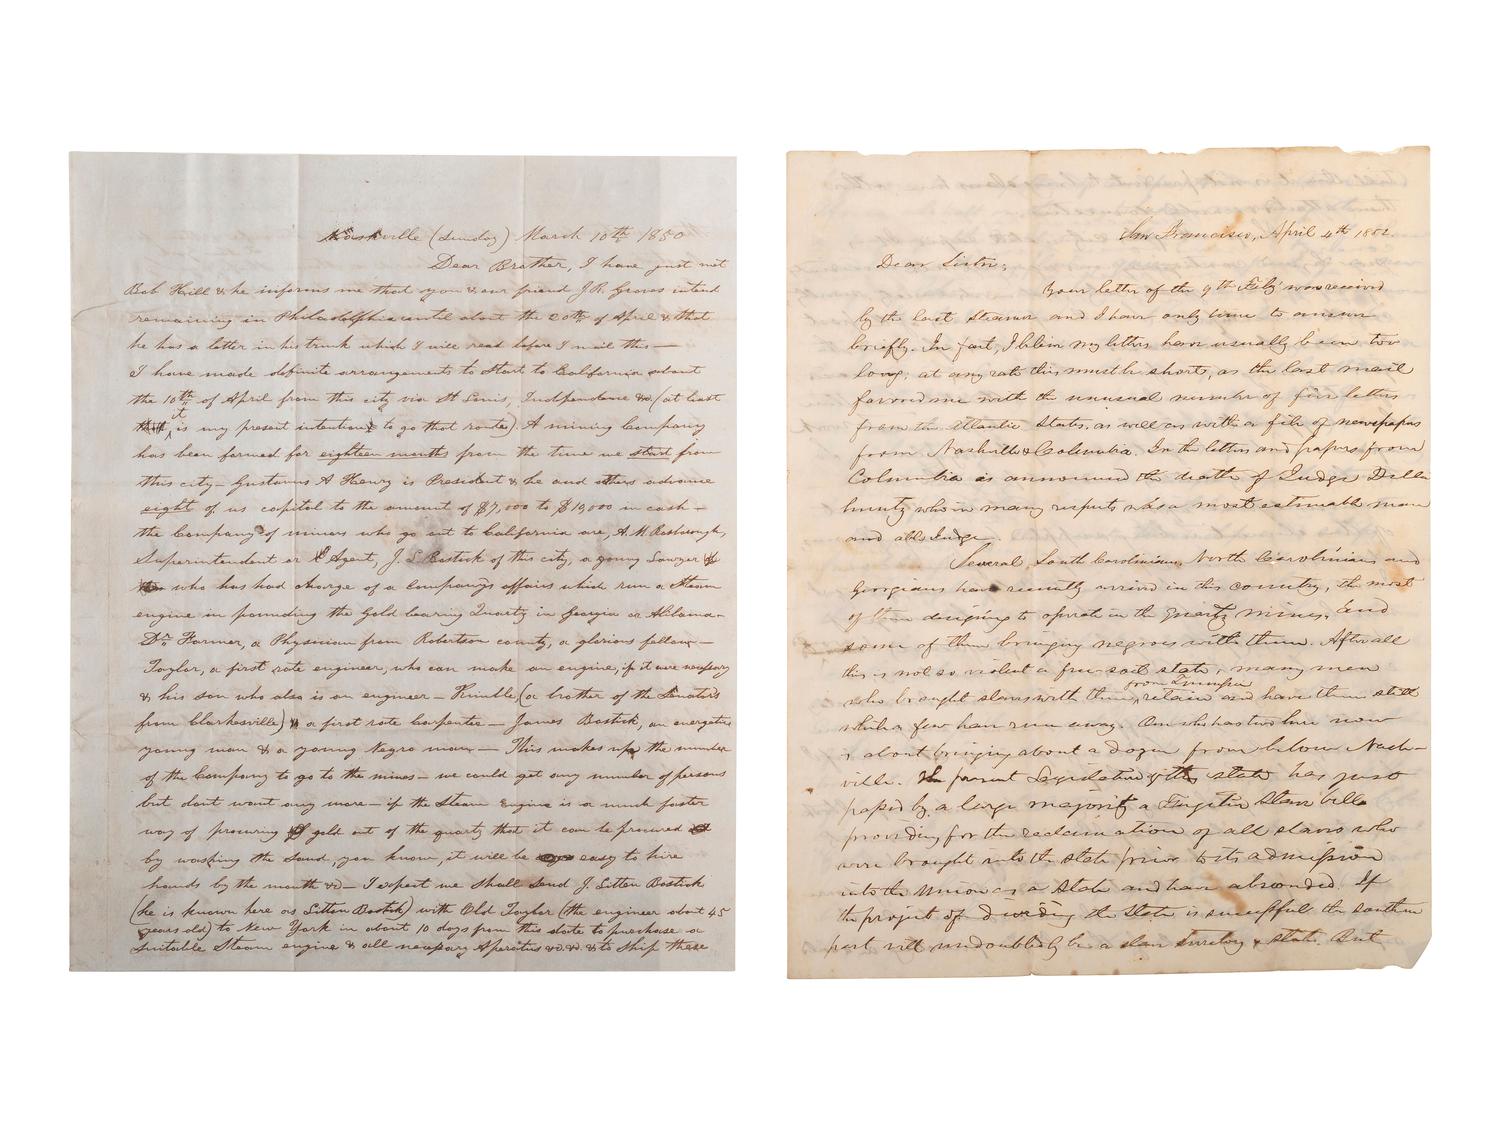 Nashville (Sunday) March 10th 1850
Dear Brother, I have just met
Bob Hill & he informs me that you & our friend J.R. Graves intend
remaining in Philadelphia until about the 20th of April & that
he has a letter in his trunk which I will read before I mail this —
I have made definite arrangements to start to California about
the 10th of April from this city via St Louis, Independence &c (at least
it is my present intention to go that route) A mining Company
has been formed for eighteen months from the time we start from
this city — Gustavus A Henry is President & he and others advance
eight of us capital to the amount of $7,000 to $10,000 in cash —
the Company of miners who go out to California are, A.M. Rosborough,
Superintendent or Agent, J. L Bostick of this city, a young Lawyer
who has had charge of a company's affairs which run a Steam
engine in pounding the Gold bearing Quartz in Georgia or Alabama —
Dr Farmer, a Physician from Robertson county, a glorious fellow —
Taylor, a first rate engineer, who can make an engine, if it were necessary
& his son who also is an engineer — Kimble, (a brother of the Senator's
from Clarksville) a first rate Carpenter — James Bostick, an energetic
young man & a young Negro man — This makes up the number
of the Company to go to the mines — we could get any number of persons
but dont want any more — if the Steam Engine is a much faster
way of procuring gold out of the quartz than it can be procured
by washing the Sand, you know, it will be easy to hire
hands by the month &c — I expect we shall send J. Litton Bostick
(he is known here as Litton Bostick) with Old Taylor (the engineer about 45
years old) to New York in about 10 days from this date to purchase a
suitable Steam engine & all necessary Aperatus &c. &c. & to ship these
San Francisco, April 4th 1852.
Dear Sister,
Your letter of the 9th Feby was received
by the last steamer and I have only time to answer
briefly. In fact, I believe my letters have usually been too
long; at any rate this must be short, as the last mail
favored me with the unusual number of five letters
from the Atlantic States, as well as with a file of newspapers
from Nashville & Columbia. In the letters and papers from
Columbia is announced the death of Judge Dilla
hunty who in many respects was a most estimable man
and able Judge.
Several South Carolinians, North Carolinians and
Georgians have recently arrived in this country, the most
of them designing to operate in the quartz mines, and
some of them bringing negroes with them. After all
this is not so violent a free-soil state; many men
from Tennessee
who brought slaves with them, retain and have them still
while a few have run away. One who has two here now
is about bringing about a dozen from below Nash-
ville. The present Legislature of this state has just
passed by a large majority a Fugitive Slave bill
providing for the reclamation of all slaves who
were brought into the state prior to its admission
into the Union as a State and have absconded. If
the project of dividing the State is successful the southern
part will undoubtedly be a slave territory & state. But